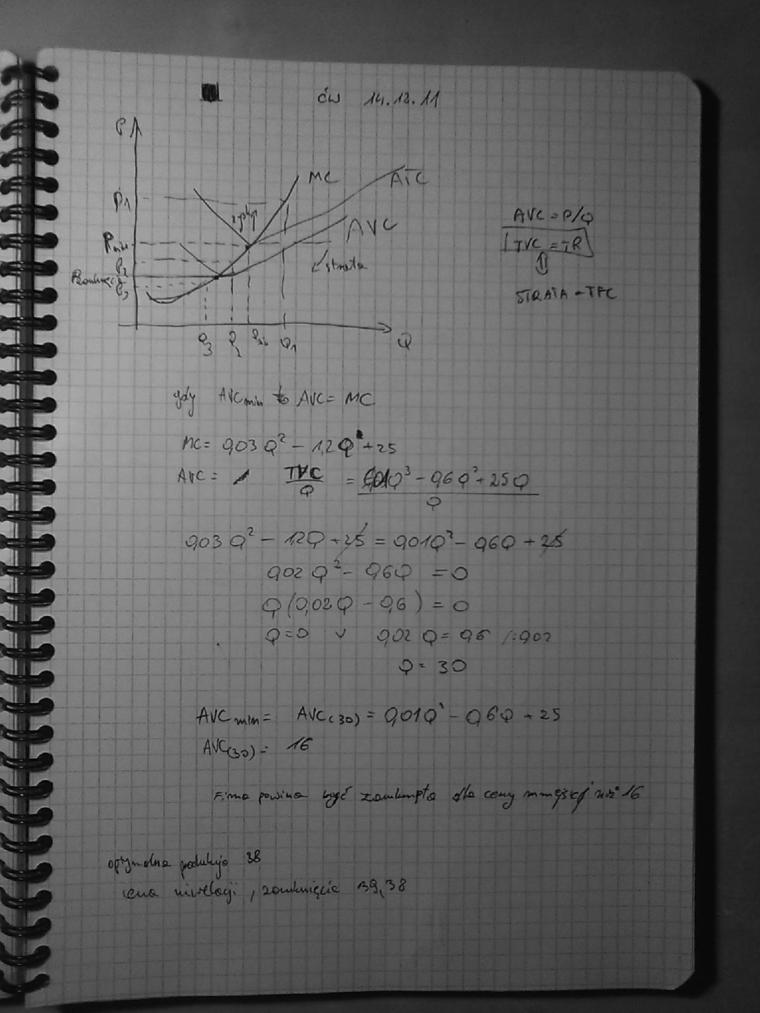 ćw 14.12.11
P
MC
ATC
P1
AVC
zysk
AVC = P/Q
TVC = TR
P2
strata
Pzamknięcia
P3
STRATA = TFC
Q3 P2 Q1 Q
gdy AVCmin to AVC = MC
MC = 0,03Q² - 1,2Q + 25
AVC = TVC/Q = 0,01Q³ - 0,6Q² + 25Q / Q
0,03Q² - 1,2Q + 25 = 0,01Q² - 0,6Q + 25
0,02Q² - 0,6Q = 0
Q(0,02Q - 0,6) = 0
Q = 0 v 0,02Q = 0,6 /:0,02
Q = 30
AVCmin = AVC(30) = 0,01Q² - 0,6Q + 25
AVC(30) = 16
Firma powina być zamknięta dla ceny mniejszej niż 16
optymalna produkcja 38
cena niwelacji, zamknięcie 39,38